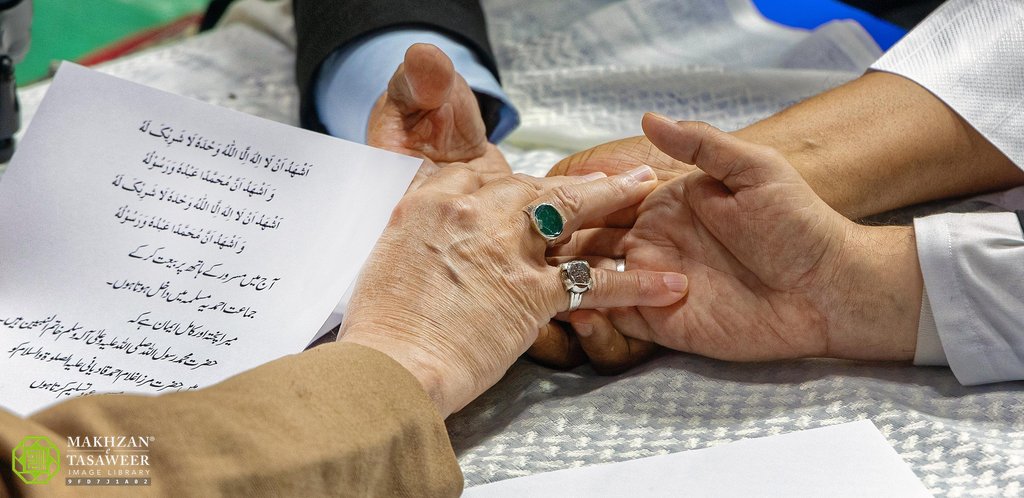 اَشْهَدُ اَنْ لَا اِلٰهَ اِلَّا اللّٰهُ وَحْدَهٗ لَا شَرِیْکَ لَهٗ
وَ اَشْهَدُ اَنَّ مُحَمَّدًا عَبْدُهٗ وَرَسُوْلُهٗ
اَشْهَدُ اَنْ لَا اِلٰهَ اِلَّا اللّٰهُ وَحْدَهٗ لَا شَرِیْکَ لَهٗ
وَ اَشْهَدُ اَنَّ مُحَمَّدًا عَبْدُهٗ وَرَسُوْلُهٗ
آج میں مسرور کے ہاتھ پر بیعت کر کے
جماعت احمدیہ مسلمہ میں داخل ہوتا ہوں۔
میرا پختہ اور کامل ایمان ہے کہ
حضرت محمد رسول اللہ صلی اللہ علیہ وآلہ وسلم خاتم النبیین ہیں۔
حضرت مرزا غلام احمد قادیانی علیہ الصلوٰۃ والسلام کو
تسلیم کرتا ہوں
MAKHZAN®
e
TASAWEER
IMAGE LIBRARY
9FD7J1A02